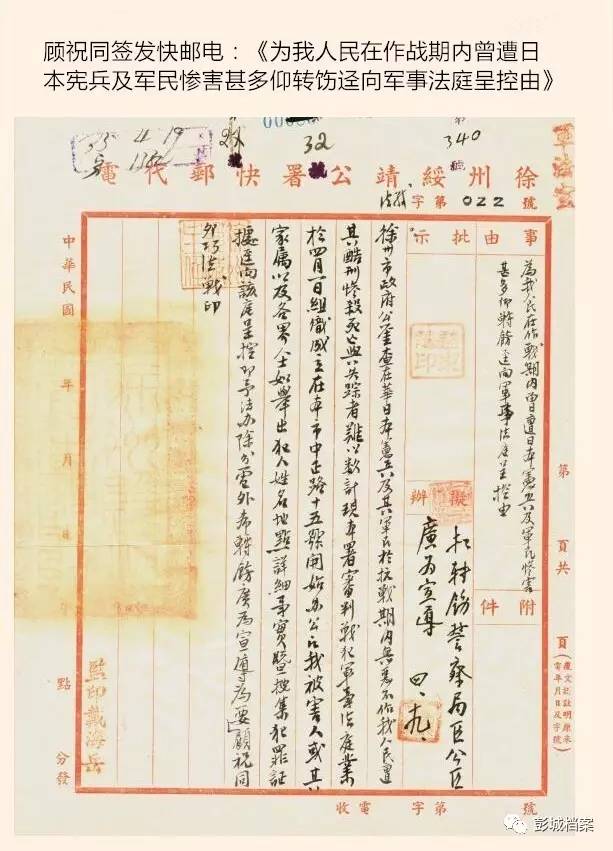 顾祝同签发快邮电：《为我人民在作战期内曾遭日
本宪兵及军民惨害甚多仰转饬迳向军事法庭呈控由》
35 4 19
32 號
340 號
軍法室
徐州綏靖公署快郵代電
法戰字第022號
事由
為我人民在作戰期内曾遭日本憲兵及軍民慘害
甚多仰轉飭逕向軍事法庭呈控由
附件
批示
擬辦
轉飭警察局
廣为宣導 四、九、
徐州市政府公鉴查在華日本憲兵及其軍民於抗戰期内無惡不作我人民遭
其酷刑慘殺死亡與失踪者難以數計現本署審判戰犯軍事法庭業
於四月一日組織成立在本市中正路十五號開始办公凡我被害人或其
家屬以及各界人士如舉出犯人姓名地點詳細事實暨搜集犯罪証
據逕向該庭呈控即予法办除分電外希轉飭廣為宣導為要顧祝同
卯巧法戰印
中華民國 年 月 日
點 分發
監印戴海岳
第 頁共 頁
收電 字第 號
彭城档案